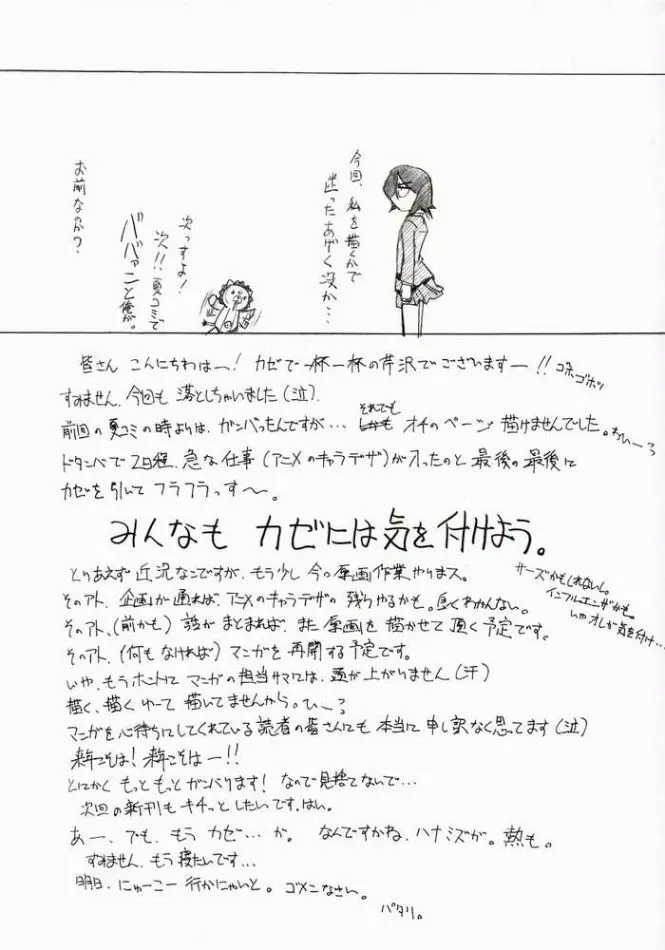 今回、私を描くかで
迷ったあげく没か…
次っすよ!
次!!夏コミで
ババァーンと俺が。
お前なのか?
皆さん こんにちわはー! カゼで一杯一杯の芹沢でございますー!! ゴホゴホッ
すみません、今回も 落としちゃいました(泣)
前回の夏コミの時よりは、ガンバったんですが… それでも オチのページ 描けませんでした。
ドタンバで 2日程、急な仕事(アニメのキャラデザ)が入ったのと 最後の最後に
カゼを引いて フラフラっす〜。
みんなも カゼには気を付けよう。
サーズかもしれないし。
インフルエンザかも。
いやオレが気を付け…
とりあえず 近況なこですが、もう少し 今の原画作業やりまス。
そのアト、企画が通れば、アニメのキャラデザの 残りやるかも。良くわかんない。
そのアト、(前かも) 話が まとまれば、また 原画を 描かせて 頂く予定です。
そのアト、(何もなければ) マンガを 再開する予定です。
いや、もうホントに マンガの担当サマには、頭が上がりません(汗)
描く、描く ゆーて 描いてませんから。ひー?
マンガを心待ちにしてくれている 読者の皆さんにも 本当に 申し訳なく思ってます(泣)
来年こそは! 来年こそはー!!
とにかく もっと もっと ガンバります! なので見捨てないで…
次回の新刊も キチッと したいです、はい。
あー、でも、もう カゼ…が。 なんですかね、ハナミズが。熱も。
すみません、もう 寝たいです…
明日、にゅーこー 行かにゃいと。 ゴメンなさい。
パタリ。